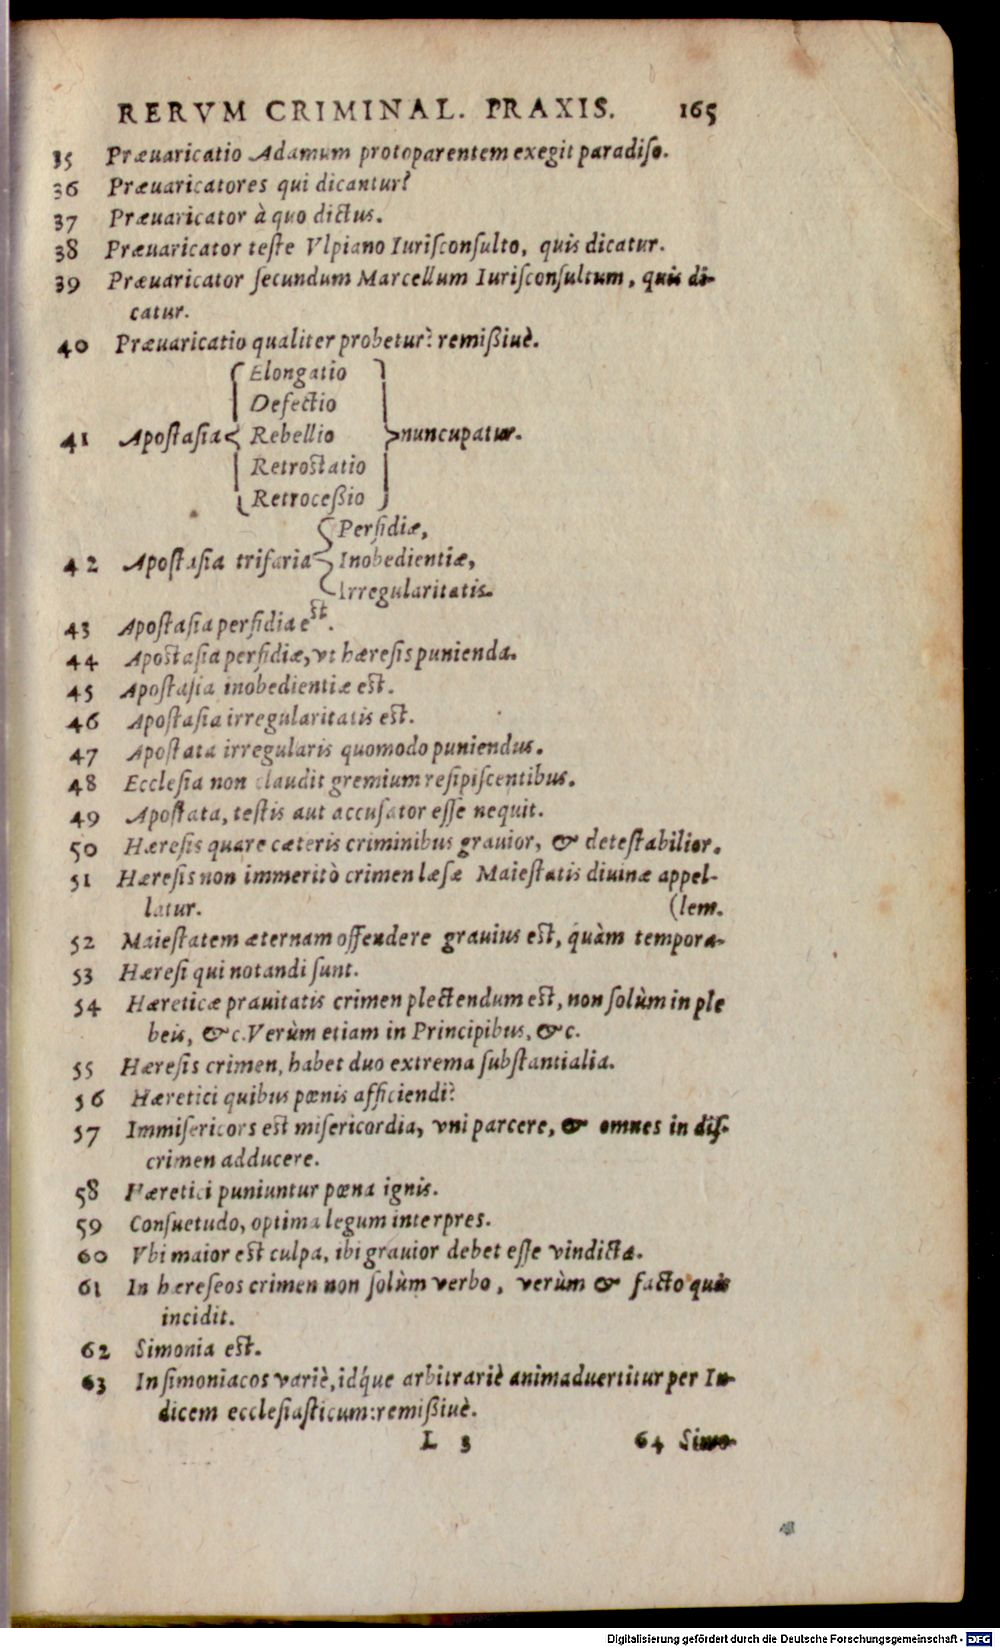 RERVM CRIMINAL. PRAXIS. 165
35 Præuaricatio Adamum protoparentem exegit paradiſo.
36 Præuaricatores qui dicantur?
37 Præuaricator à quo dictus.
38 Præuaricator teſte Vlpiano Iuriſconſulto, quis dicatur.
39 Præuaricator ſecundum Marcellum Iuriſconſultum, quis di-
catur.
40 Præuaricatio qualiter probetur? remißiuè.
Elongatio
Defectio
41 Apoſtaſia Rebellio nuncupatur.
Retroſtatio
Retroceßio
Perfidiæ,
42 Apoſtaſia trifaria Inobedientiæ,
Irregularitatis.
43 Apoſtaſia perfidia eſt.
44 Apoſtaſia perfidiæ, vt hæreſis punienda.
45 Apoſtaſia inobedientiæ eſt.
46 Apoſtaſia irregularitatis eſt.
47 Apoſtata irregularis quomodo puniendus.
48 Eccleſia non claudit gremium reſipiſcentibus.
49 Apoſtata, teſtis aut accuſator eſſe nequit.
50 Hæreſis quare cæteris criminibus grauior, & deteſtabilior.
51 Hæreſis non immeritò crimen læſæ Maieſtatis diuinæ appel-
latur. (lem.
52 Maieſtatem æternam offendere grauius eſt, quàm tempora-
53 Hæreſi qui notandi ſunt.
54 Hæreticæ prauitatis crimen plectendum eſt, non ſolùm in ple
beis, &c. Verùm etiam in Principibus, &c.
55 Hæreſis crimen, habet duo extrema ſubſtantialia.
56 Hæretici quibus pœnis afficiendi?
57 Immiſericors eſt miſericordia, vni parcere, & omnes in diſ-
crimen adducere.
58 Hæretici puniuntur pœna ignis.
59 Conſuetudo, optima legum interpres.
60 Vbi maior eſt culpa, ibi grauior debet eſſe vindicta.
61 In hæreſeos crimen non ſolùm verbo, verùm & facto quis
incidit.
62 Simonia eſt.
63 In ſimoniacos variè, idq́ue arbitrariè animaduertitur per Iu-
dicem eccleſiaſticum: remißiuè.
L 3 64 Simo-
Digitalisierung gefördert durch die Deutsche Forschungsgemeinschaft - DFG